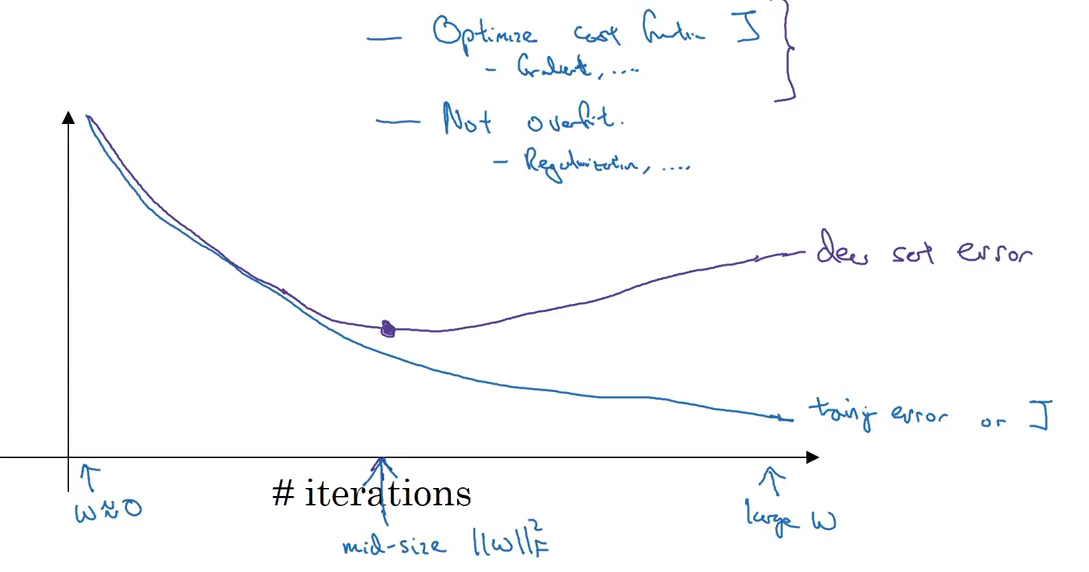 — Optimize cost function J
- Gradient, ....
— Not overfit.
- Regularization, ....
dev set error
training error or J
w≈0
# iterations
mid-size ||w||²_F
large w